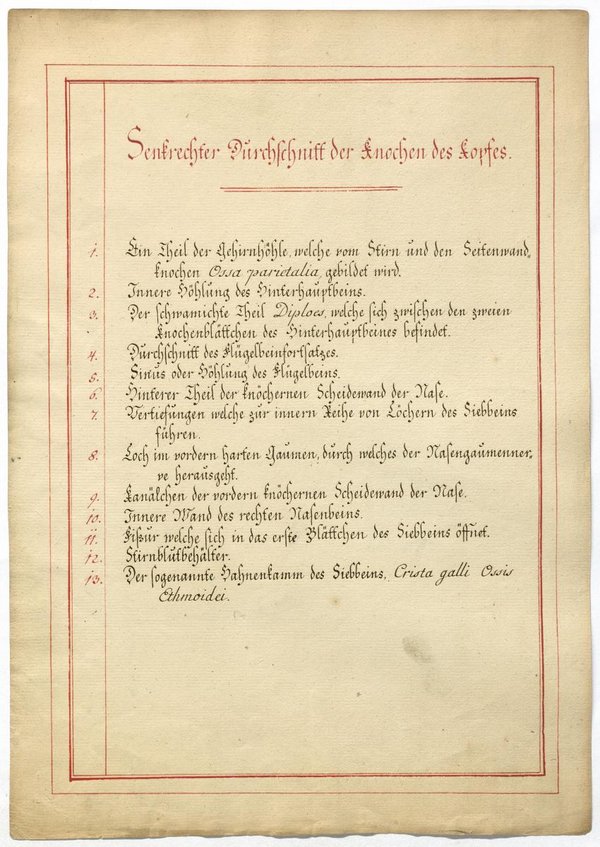 Senkrechter Durchschnitt der Knochen des Kopfes.
1. Ein Theil der Gehirnhöhle, welche vom Stirn und den Seitenwand,
knochen Ossa parietalia, gebildet wird.
2. Innere Höhlung des Hinterhauptbeins.
3. Der schwamichte Theil Diploes, welche sich zwischen den zweien
Knochenblättchen des Hinterhauptbeines befindet.
4. Durchschnitt des Flügelbeinfortsatzes.
5. Sinus oder Höhlung des Flügelbeins.
6. Hinterer Theil der knöchernen Scheidewand der Nase.
7. Vertiefungen welche zur innern Reihe von Löchern des Siebbeins
führen.
8. Loch im vordern harten Gaumen, durch welches der Nasengaumenner,
ve herausgeht.
9. Kanälchen der vordern knöchernen Scheidewand der Nase.
10. Innere Wand des rechten Nasenbeins.
11. Fißur welche sich in das erste Blättchen des Siebbeins öffnet.
12. Stirnblutbehälter.
13. Der sogenannte Hahnenkamm des Siebbeins, Crista galli Ossis
Ethmoidei.